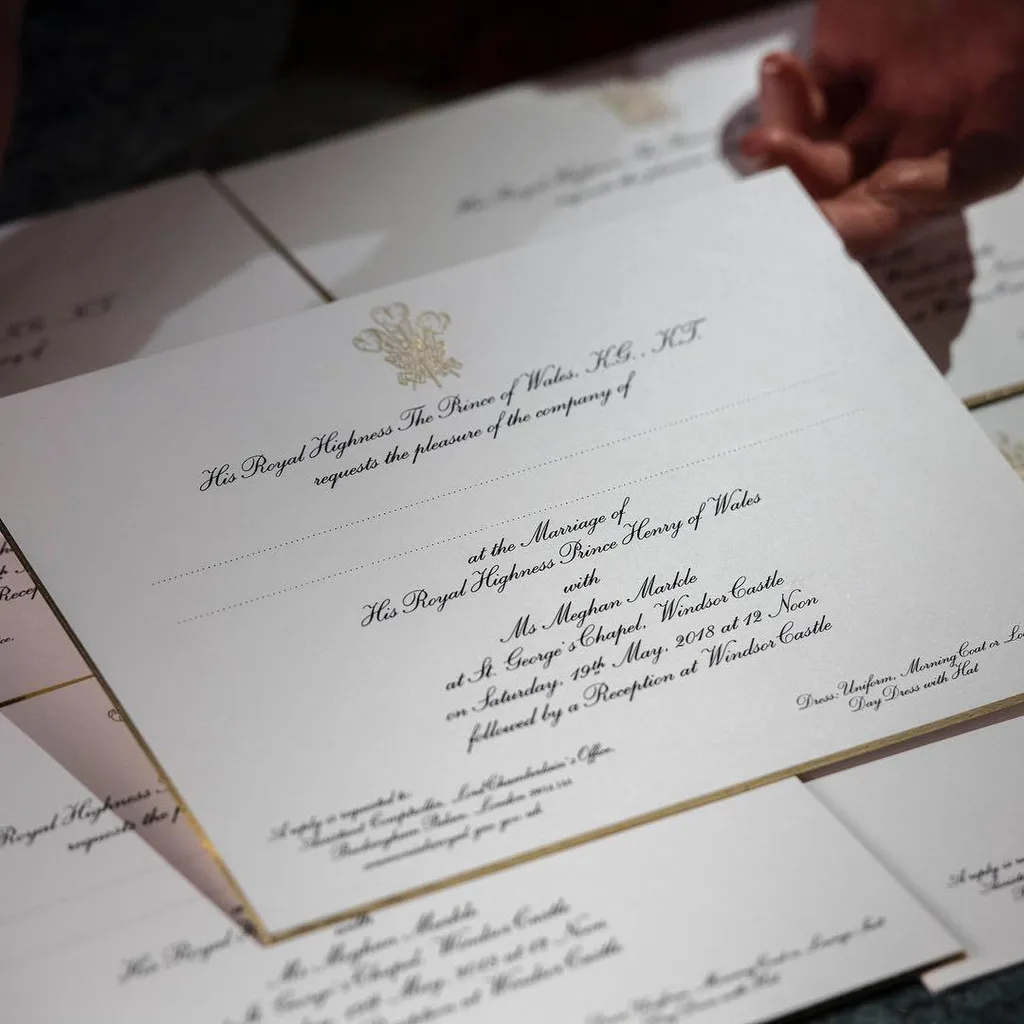 His Royal Highness The Prince of Wales, K.G., K.T.
requests the pleasure of the company of
at the Marriage of
His Royal Highness Prince Henry of Wales
with
Ms Meghan Markle
at St. George's Chapel, Windsor Castle
on Saturday, 19th May, 2018 at 12 Noon
followed by a Reception at Windsor Castle
Dress: Uniform, Morning Coat or Lo
Day Dress with Hat
A reply is requested to:
Assistant Comptroller, Lord Chamberlain's Office
Buckingham Palace, London
Royal Highness
requests the p
His Royal
with
Ms Meghan Markle
St. George's Chapel, Windsor Castle
May, 2018 at 12 Noon
Reception at Windsor Castle
Dress: Uniform, Morning Coat or Lounge Suit
Day Dress with Hat